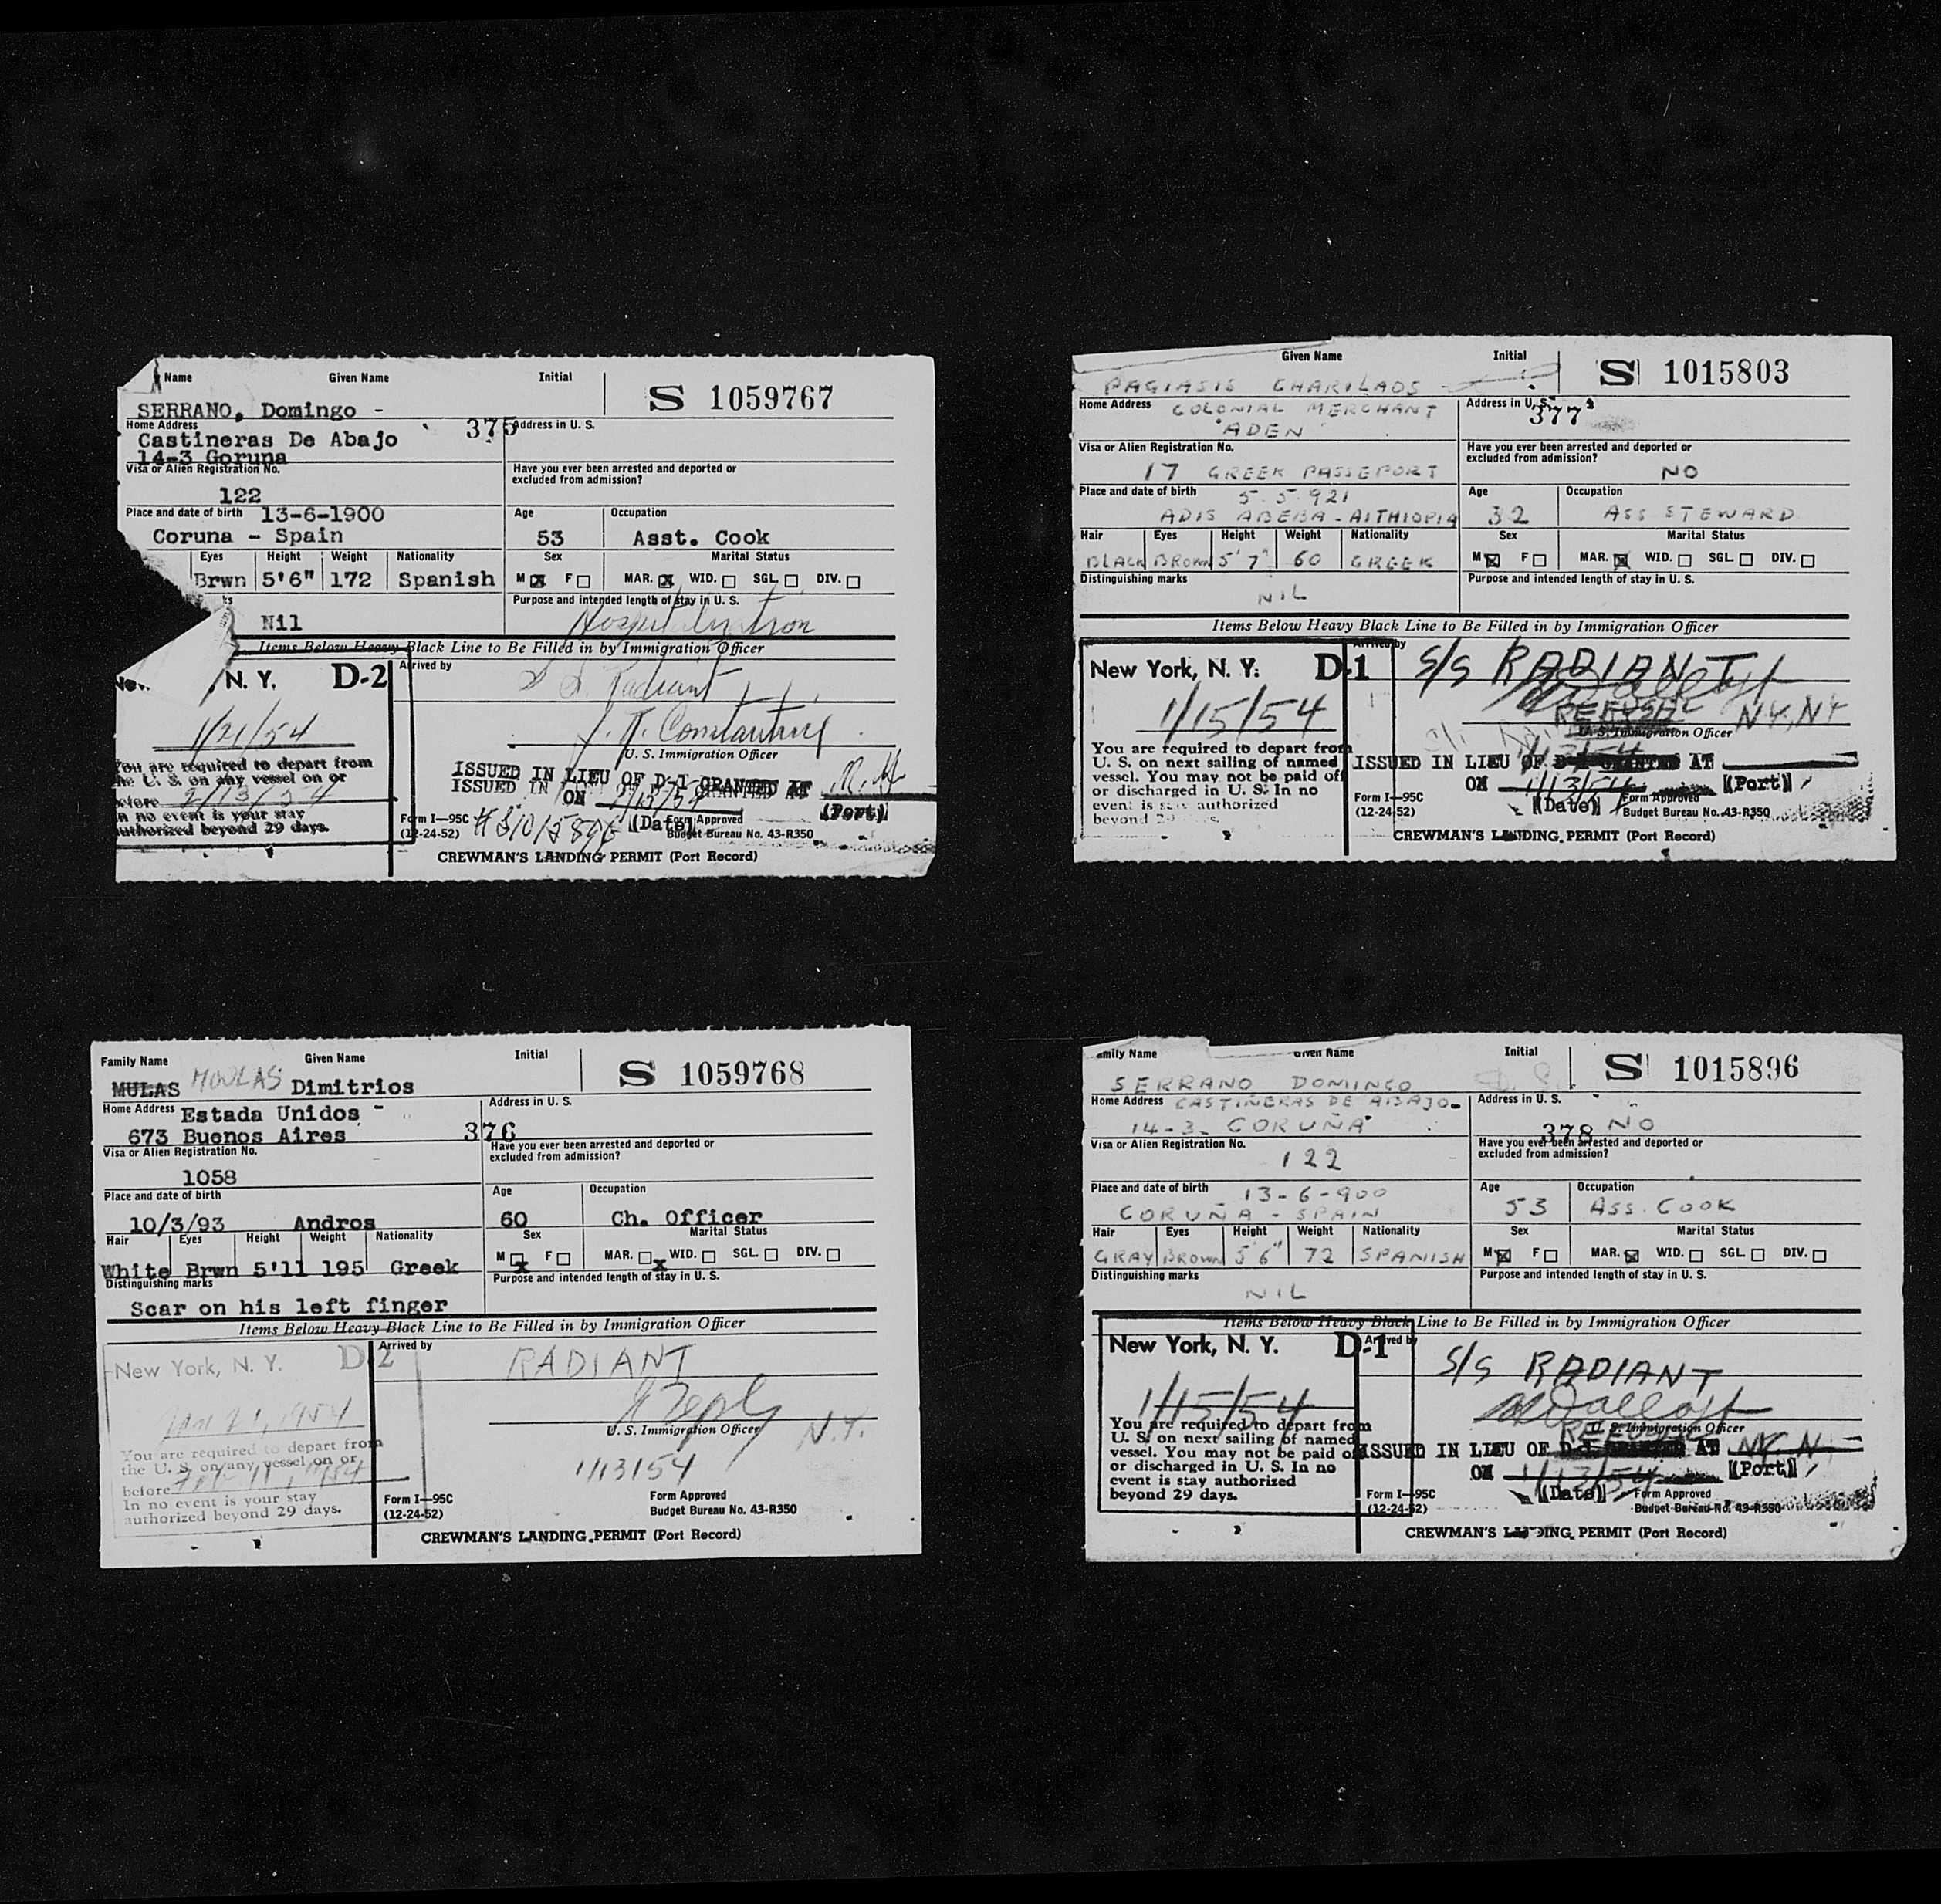 Name Given Name Initial
S 1059767
SERRANO, Domingo -
Home Address
375 Address in U. S.
Castineras De Abajo
14-3 Goruna
Visa or Alien Registration No.
Have you ever been arrested and deported or
excluded from admission?
122
Place and date of birth 13-6-1900
Age Occupation
Coruna - Spain
53 Asst. Cook
Eyes Height Weight Nationality
Sex Marital Status
Brwn 5'6" 172 Spanish
M F MAR. WID. SGL. DIV.
Purpose and intended length of stay in U. S.
Nil
Hospitalization
Items Below Heavy Black Line to Be Filled in by Immigration Officer
N. Y. D-2
Arrived by
S.S. Radiant
1/21/54
U. S. Immigration Officer
You are required to depart from
the U. S. on any vessel on or
before 2/13/54
In no event is your stay
authorized beyond 29 days.
ISSUED IN LIEU OF D-1 GRANTED AT
ISSUED IN
ON
(Port)
(Date)
Form I—95C
(12-24-52)
Form Approved
Budget Bureau No. 43-R350
CREWMAN'S LANDING PERMIT (Port Record)
Given Name Initial
S 1015803
PAGIASIS CHARILAOS
Home Address COLONIAL MERCHANT
Address in U. S.
377
"ADEN"
Visa or Alien Registration No.
Have you ever been arrested and deported or
excluded from admission?
17 GREEK PASSEPORT
NO
Place and date of birth 5.5.921
Age Occupation
ADIS ABEBA - AITHIOPIA
32 ASS STEWARD
Hair Eyes Height Weight Nationality
Sex Marital Status
BLACK BROWN 5'7" 60 GREEK
M F MAR. WID. SGL. DIV.
Distinguishing marks
Purpose and intended length of stay in U. S.
NIL
Items Below Heavy Black Line to Be Filled in by Immigration Officer
New York, N. Y. D-1
Arrived by
S/S RADIANT
1/15/54
N.Y., N.Y.
U. S. Immigration Officer
You are required to depart from
U. S. on next sailing of named
vessel. You may not be paid off
or discharged in U. S. In no
event is stay authorized
beyond 29
ISSUED IN LIEU OF D-1 AT
ON 1/13/54 (Port)
(Date)
Form I—95C
(12-24-52)
Form Approved
Budget Bureau No. 43-R350
CREWMAN'S LANDING PERMIT (Port Record)
Family Name Given Name Initial
S 1059768
MULAS MOULAS Dimitrios
Home Address Estada Unidos -
Address in U. S.
673 Buenos Aires
376
Visa or Alien Registration No.
Have you ever been arrested and deported or
excluded from admission?
1058
Place and date of birth
Age Occupation
10/3/93 Andros
60 Ch. Officer
Hair Eyes Height Weight Nationality
Sex Marital Status
M F MAR. WID. SGL. DIV.
White Brwn 5'11 195 Greek
Distinguishing marks
Purpose and intended length of stay in U. S.
Scar on his left finger
Items Below Heavy Black Line to Be Filled in by Immigration Officer
New York, N. Y. D-2
Arrived by
RADIANT
Jan 21, 1954
U. S. Immigration Officer
N.Y.
1/13/54
You are required to depart from
the U. S. on any vessel on or
before
In no event is your stay
authorized beyond 29 days.
Form I—95C
(12-24-52)
Form Approved
Budget Bureau No. 43-R350
CREWMAN'S LANDING PERMIT (Port Record)
Family Name Given Name Initial
S 1015896
SERRANO DOMINGO
Home Address CASTIÑERAS DE ABAJO-
Address in U. S.
14-3 CORUÑA
378 NO
Visa or Alien Registration No.
Have you ever been arrested and deported or
excluded from admission?
122
Place and date of birth 13-6-900
Age Occupation
CORUÑA - SPAIN
53 ASS. COOK
Hair Eyes Height Weight Nationality
Sex Marital Status
GRAY BROWN 5'6" 72 SPANISH
M F MAR. WID. SGL. DIV.
Distinguishing marks
Purpose and intended length of stay in U. S.
NIL
Items Below Heavy Black Line to Be Filled in by Immigration Officer
New York, N. Y. D-1
Arrived by
S/S RADIANT
1/15/54
U. S. Immigration Officer
You are required to depart from
U. S. on next sailing of named
vessel. You may not be paid off
or discharged in U. S. In no
event is stay authorized
beyond 29 days.
ISSUED IN LIEU OF D-1 AT
ON 1/13/54 (Port)
(Date)
Form I—95C
(12-24-52)
Form Approved
Budget Bureau No. 43-R350
CREWMAN'S LANDING PERMIT (Port Record)